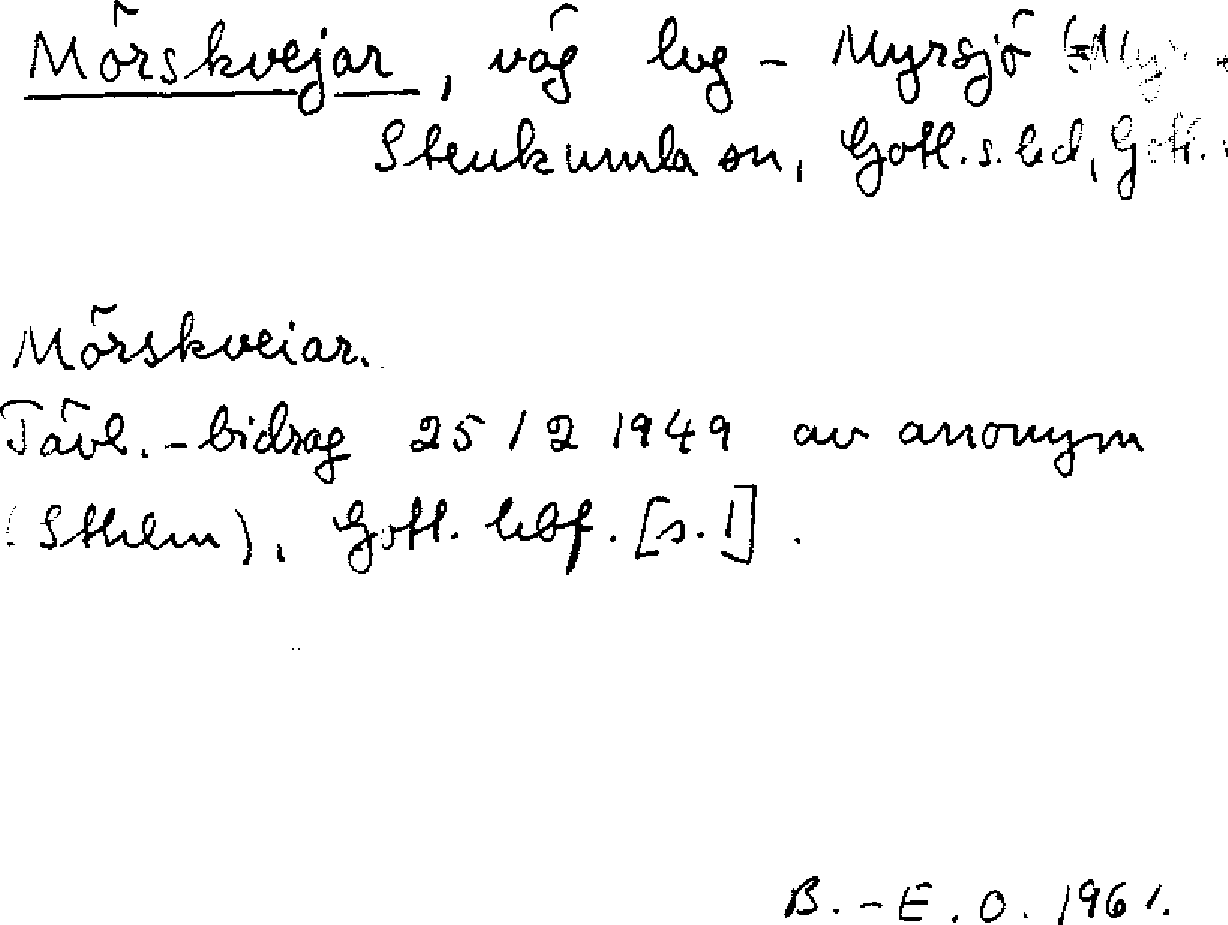 Mörskvejar, väg lvg – Myrsjö
Stenkumla sn, Gotl. s. hd, Gotl.
Mörskveiar.
Tävl.-bidrag 25/2 1949 av anonym
(Sthlm), Gotl. hbf. [s. 1].
B.-E. O. 1961.